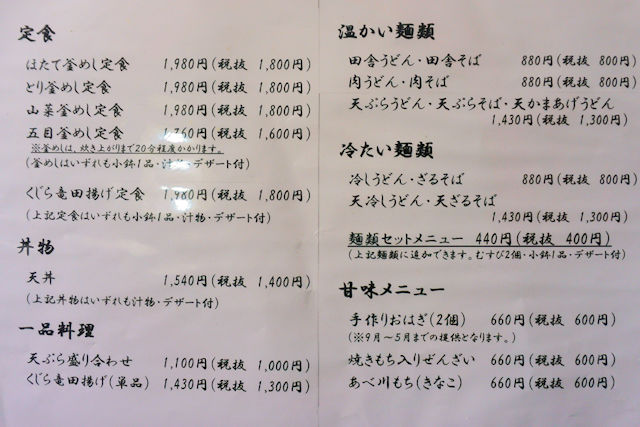 定食
ほたて釜めし定食 1,980円(税抜 1,800円)
とり釜めし定食 1,980円(税抜 1,800円)
山菜釜めし定食 1,980円(税抜 1,800円)
五目釜めし定食 1,760円(税抜 1,600円)
※釜めしは、炊き上がりまで20分程度かかります。
(釜めしはいずれも小鉢1品・汁物・デザート付)
くじら竜田揚げ定食 1,980円(税抜 1,800円)
(上記定食はいずれも小鉢1品・汁物・デザート付)
丼物
天丼 1,540円(税抜 1,400円)
(上記丼物はいずれも汁物・デザート付)
一品料理
天ぷら盛り合わせ 1,100円(税抜 1,000円)
くじら竜田揚げ(単品) 1,430円(税抜 1,300円)
温かい麺類
田舎うどん・田舎そば 880円(税抜 800円)
肉うどん・肉そば 880円(税抜 800円)
天ぷらうどん・天ぷらそば・天かまあげうどん
1,430円(税抜 1,300円)
冷たい麺類
冷しうどん・ざるそば 880円(税抜 800円)
天冷しうどん・天ざるそば
1,430円(税抜 1,300円)
麺類セットメニュー 440円(税抜 400円)
(上記麺類に追加できます。むすび2個・小鉢1品・デザート付)
甘味メニュー
手作りおはぎ(2個) 660円(税抜 600円)
(※9月～5月までの提供となります。)
焼きもち入りぜんざい 660円(税抜 600円)
あべ川もち(きなこ) 660円(税抜 600円)